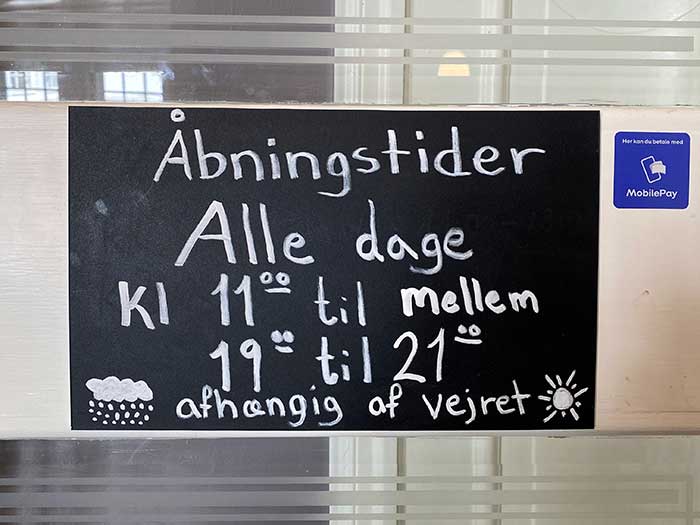 Åbningstider
Alle dage
Kl 11⁰⁰ til mellem
19⁰⁰ til 21⁰⁰
afhængig af vejret
Her kan du betale med
MobilePay